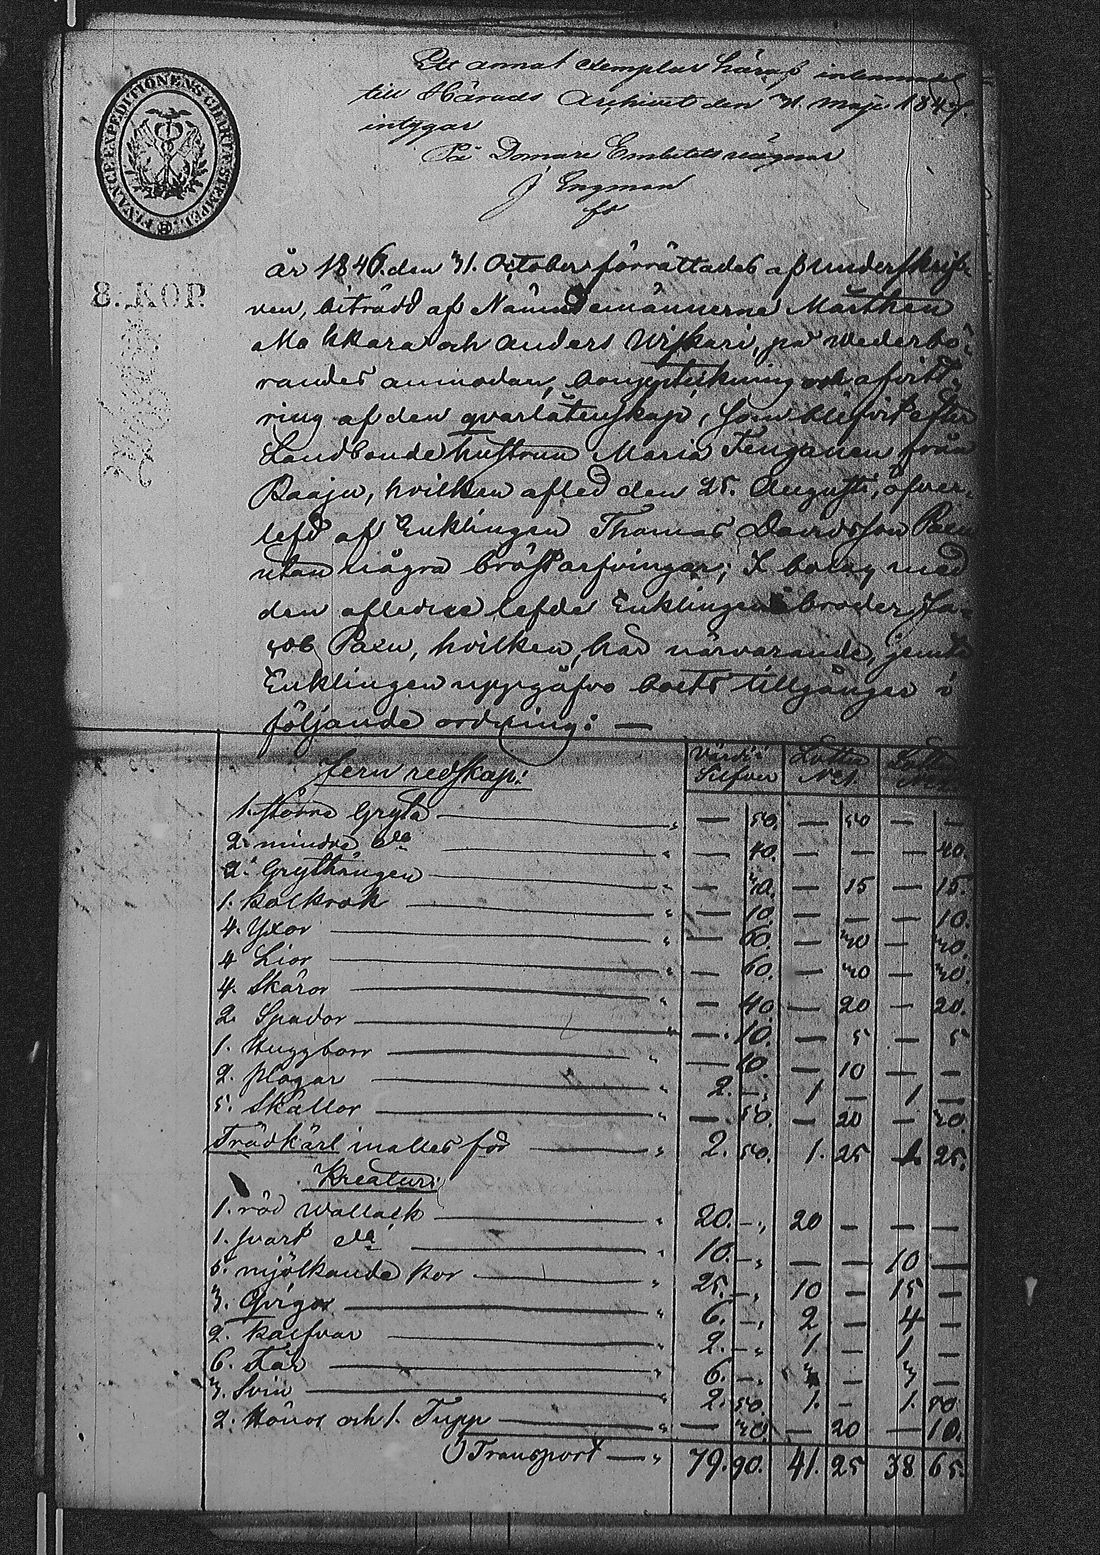 Ett annat exemplar häraf inlemnadt
till Härads Archivet den 31. Maji 1847.
intygar
På Domare Embetets vägnar
J Engman
FINANCE EXPEDITIONENS CHARTÆ STEMPEL
8. KOP.
År 1846. den 31. October förrättades af underskrif-
ven, biträdd af Nämndemännerne Matthen
Makkara och Anders Uiskari, på wederbö-
randes anmodan, bouppteckning och afvitt-
ring af den qvarlåtenskap, som blifvit efter
Landbonde hustrun Maria Tenganen från
Raaju, hvilken afled den 25. Augusti, öfver-
lefd af Enklingen Thomas Davidsson Paxu
utan några bröstarfvingar; I bolag med
den aflidne lefde Enklingens broder Ja-
cob Paxu, hvilken, här närvarande, jemte
Enklingen uppgåfvo boets tillgångar i
följande ordning: —
Jern redskap: Värdi i Silfver Lotten N:o 1. Lotten
1. större Gryta — 50. — 50 — —
2. mindre d:o — 40. — — — 40.
2. Grythängen — 30. — 15 — 15.
1. Kalkrok — 10. — — — 10.
4. Yxor — 60. — 30 — 30.
4 Lior — 60. — 30 — 30.
4. Skäror — 40. — 20 — 20.
2. Spador — 10. — 5 — 5
1. Huggborr — 10. — 10 — —
2. Plogar 2. — 1 — 1 —
5. Skällor — 50. — 20 — 30.
Trädkärl i malles för 2. 50. 1. 25 1. 25.
Kreatur:
1. röd Wallack 20. — 20 — — —
1. svart d:o 10. — — — 10 —
5. mjölkande Kor 25. — 10 — 15 —
3. Qvigor 6. — 2 — 4 —
2. Kalfvar 2. — 1. — 1 —
6. Får 6. — 3 — 3 —
3. Svin 2. 50. 1. — 1. 50.
2. Hönor och 1. Tupp — 30. — 20 — 10.
Transport — 79. 90. 41. 25 38 65.